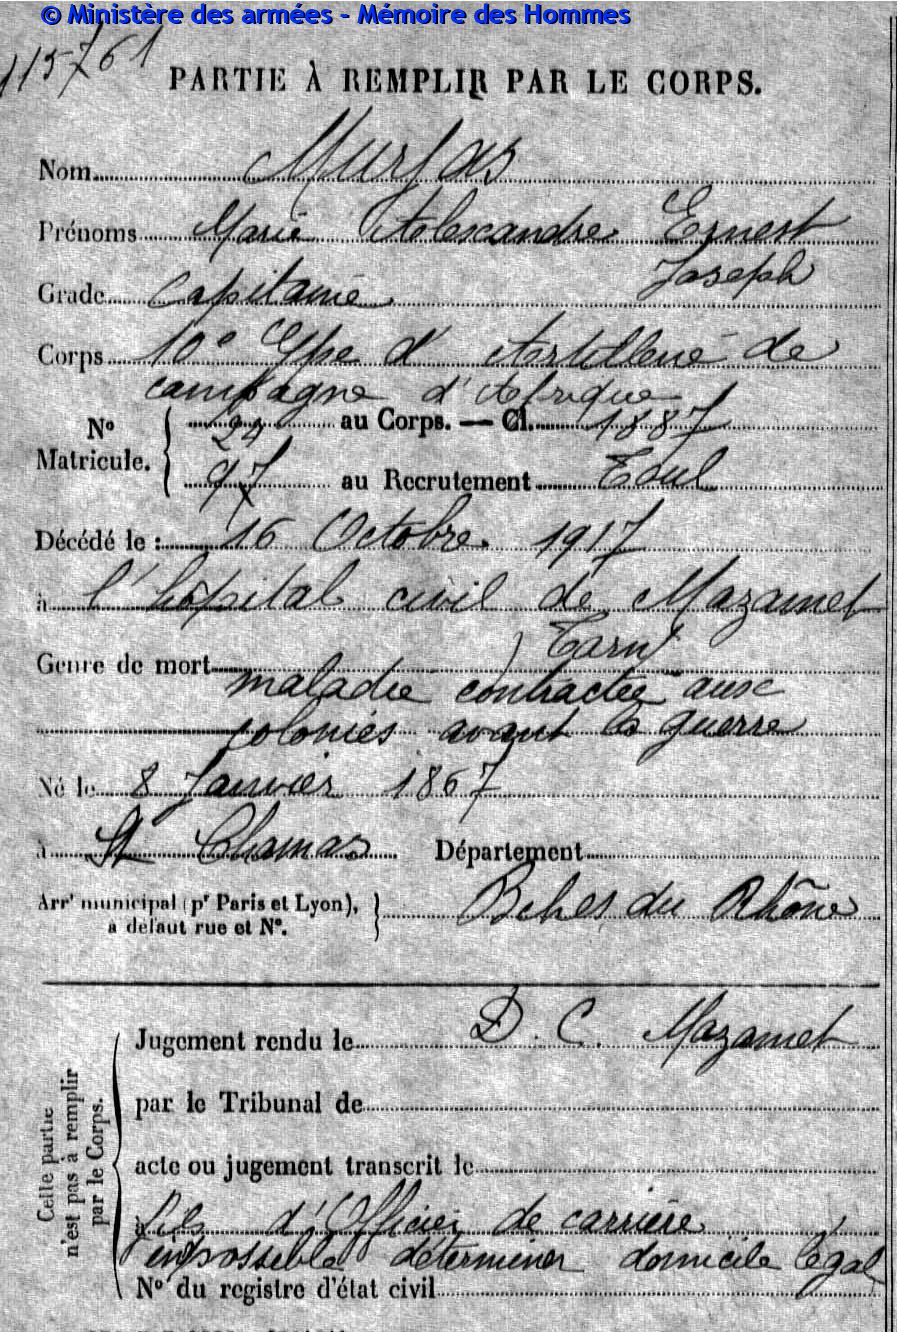 © Ministère des armées - Mémoire des Hommes
115761
PARTIE À REMPLIR PAR LE CORPS.
Nom
Prénoms Marie Alexandre Ernest
Joseph
Grade Capitaine
Corps 10e Gpe d'Artillerie de
campagne d'Afrique
No Matricule. 24 au Corps. — Cl. 1887
97 au Recrutement Toul
Décédé le : 16 Octobre 1917
à l'hôpital civil de Mazamet
Tarn
Genre de mort maladie contractée aux
colonies avant la guerre
Né le 8 Janvier 1867
à St Chamas Département
Arrt municipal (pr Paris et Lyon), à défaut rue et No. Bches du Rhône
Jugement rendu le D. C. Mazamet
par le Tribunal de
acte ou jugement transcrit le
à fils d'Officier de carrière
impossible déterminer domicile légal
No du registre d'état civil
Cette partie n'est pas à remplir par le Corps.